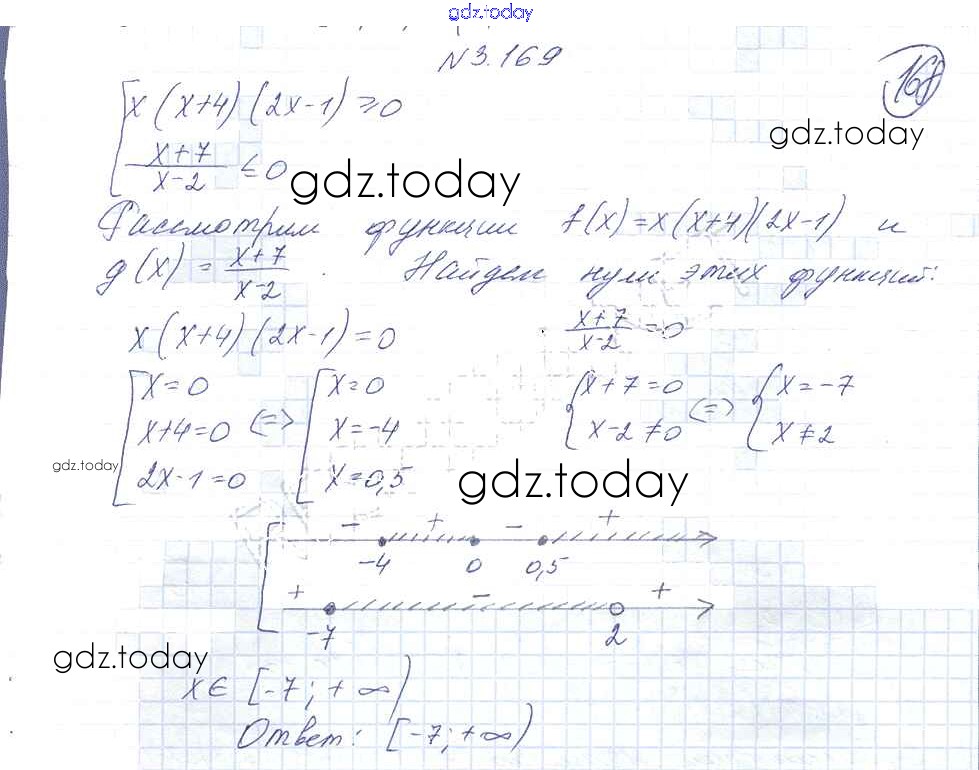 gdz.today
N3.169
168
[ x(x+4)(2x-1) ≥ 0
gdz.today
(x+7)/(x-2) ≤ 0
gdz.today
Рассмотрим функции f(x)=x(x+4)(2x-1) и
g(x) = (x+7)/(x-2). Найдем нули этих функций:
x(x+4)(2x-1)=0 (x+7)/(x-2)=0
[ x=0 [ x=0 { x+7=0 { x=-7
x+4=0 <=> x=-4 x-2≠0 <=> x≠2
gdz.today
2x-1=0 x=0,5
gdz.today
[ - + - +
-4 0 0,5
+ - +
-7 2
gdz.today
x∈ [-7;+∞)
Ответ: [-7;+∞)